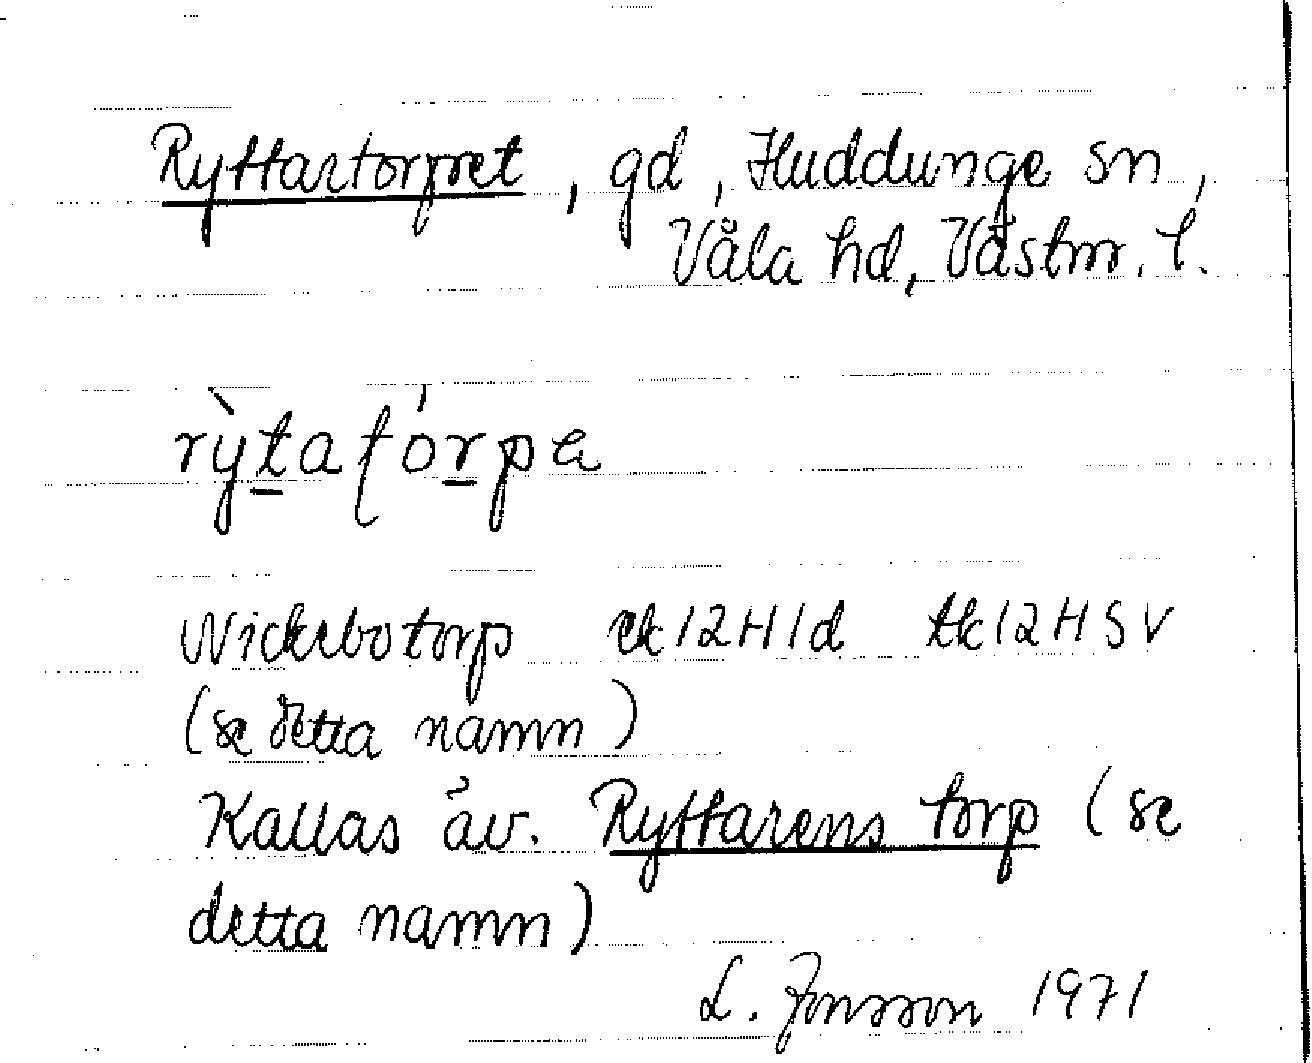 Ryttartorpet, gd, Huddunge sn,
Våla hd, Västm. l.
rỳtatórpa
Wickebotorp ek 12H1d tk 12H SV
(se detta namn)
Kallas äv. Ryttarens torp (se
detta namn)
L. Jonsson 1971